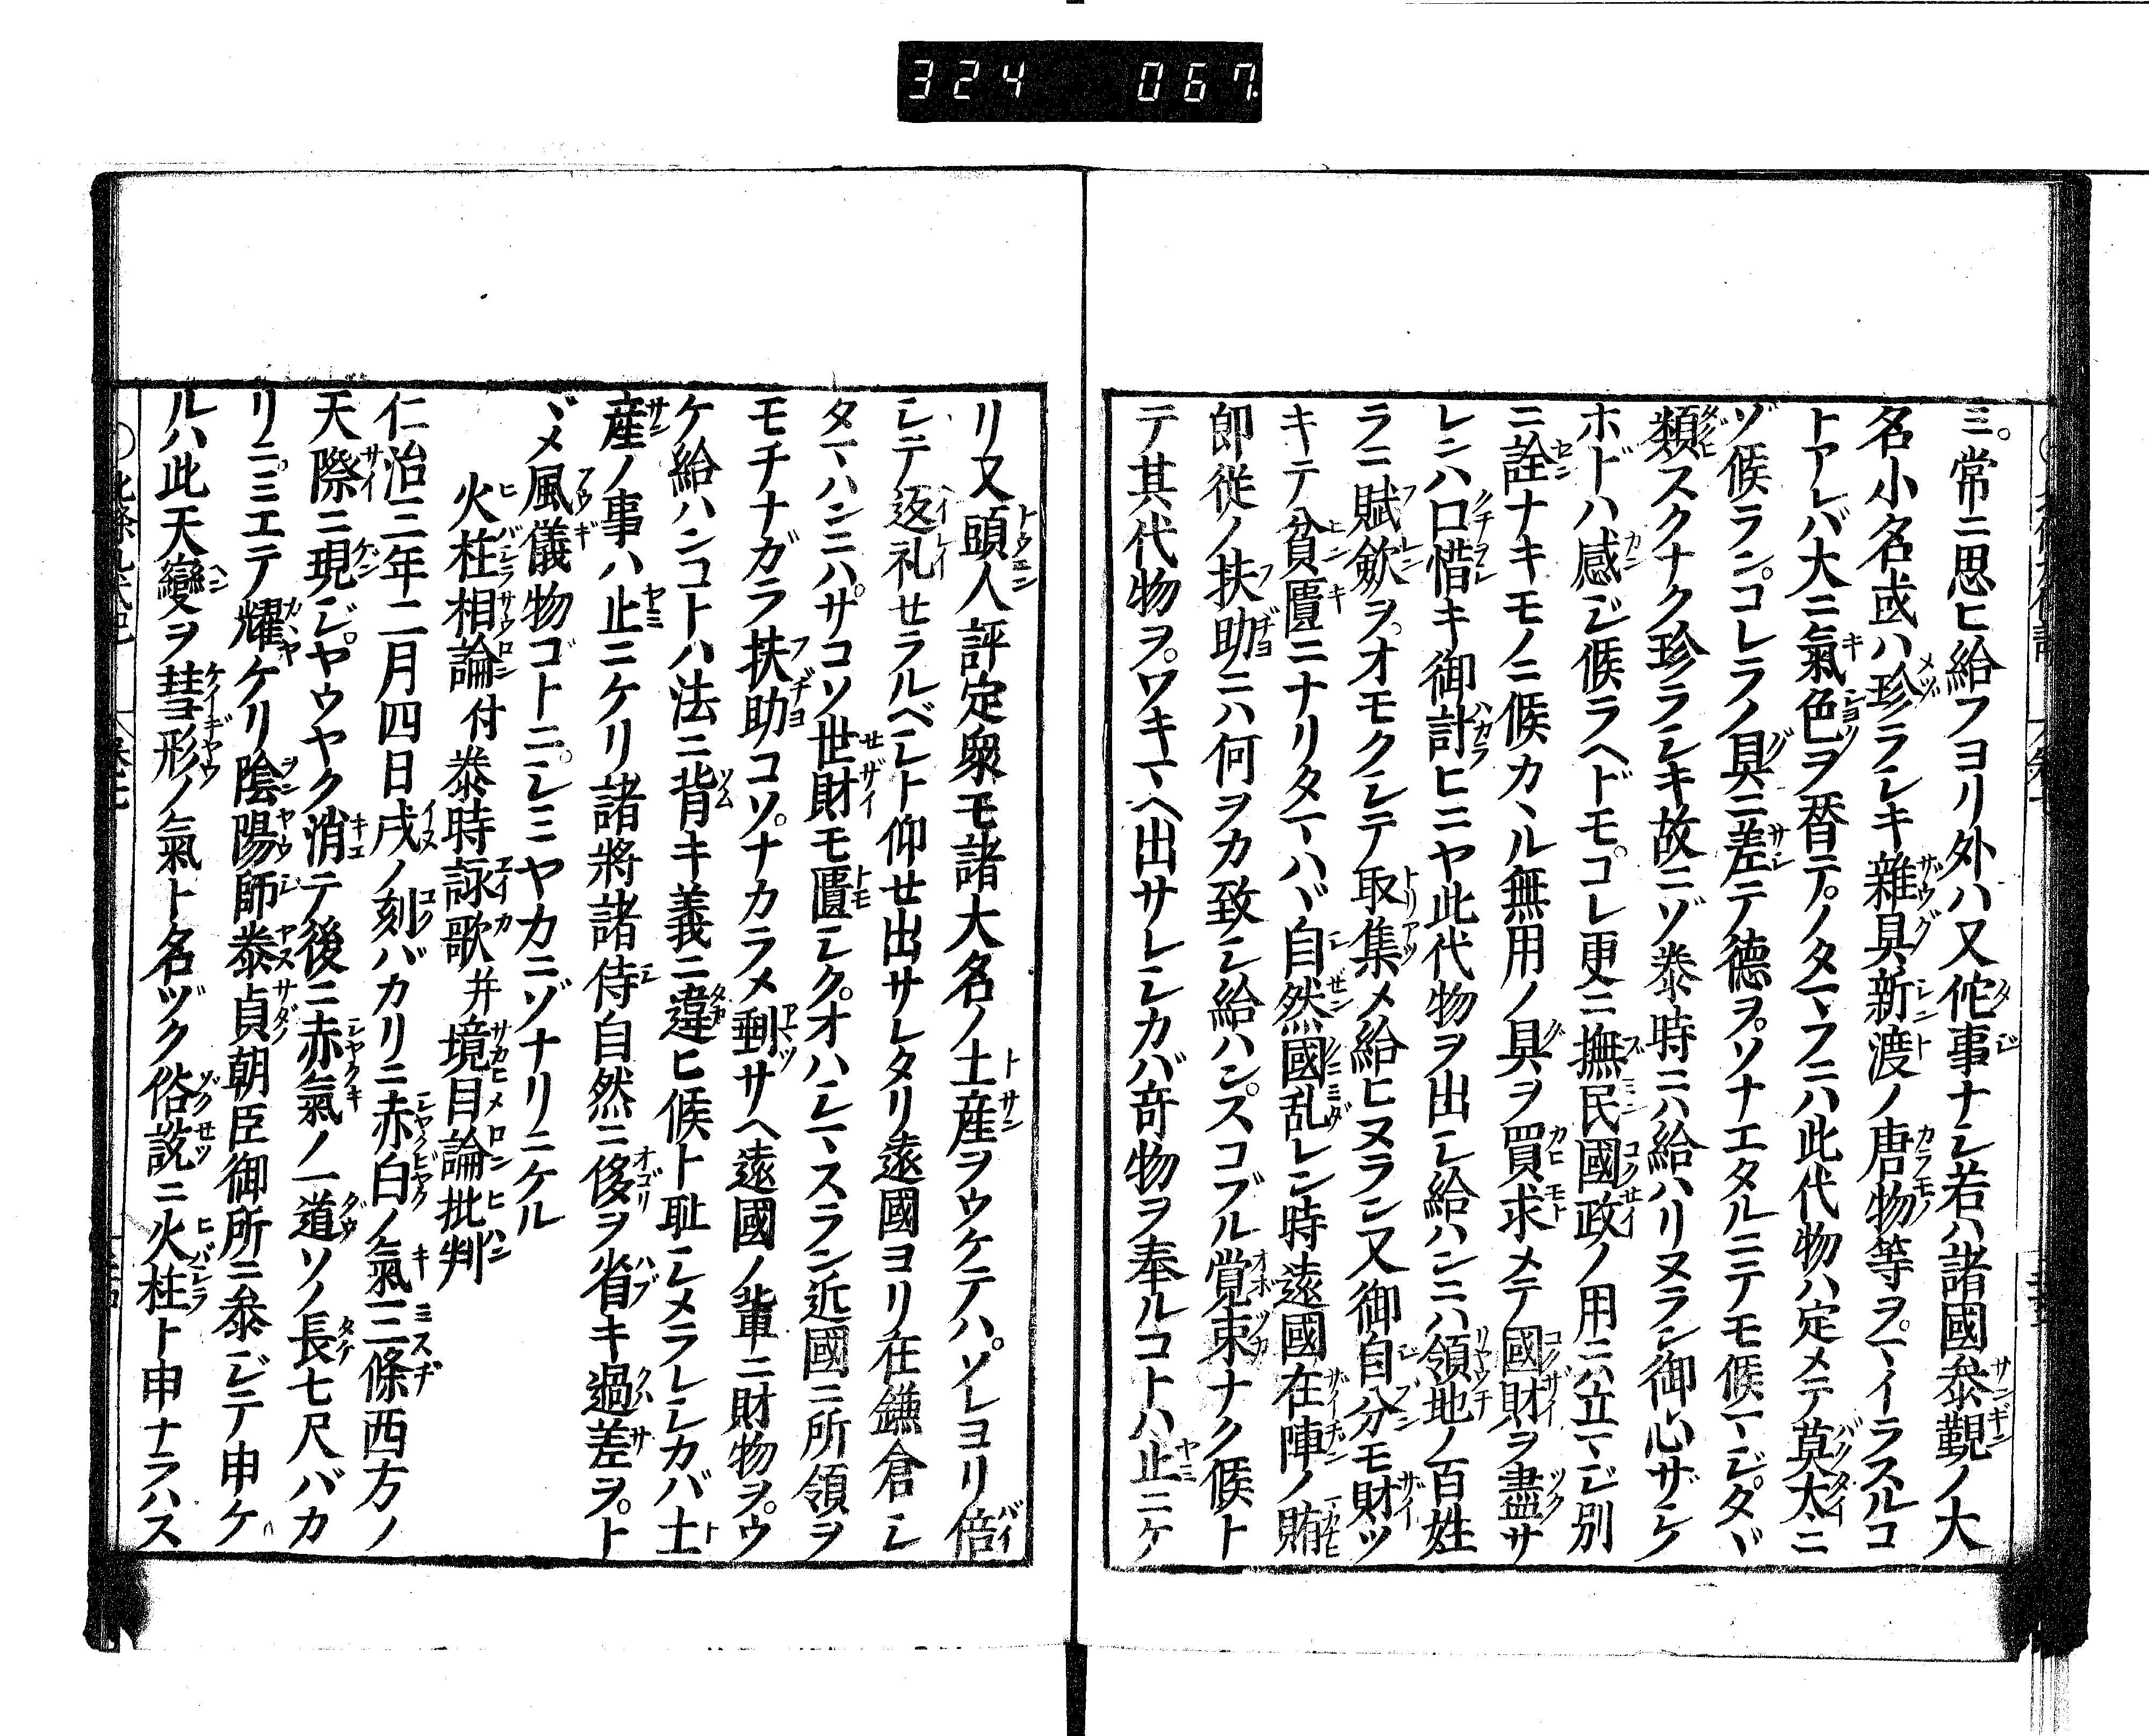 324 067
ミ。常ニ思ヒ給フヨリ外ハ又佗事ナシ若ハ諸國參覲ノ大
名小名或ハ珍ラシキ雜具新渡ノ唐物等ヲ。マイラスルコ
トアレバ大ニ氣色ヲ替テ。ノタマフニハ此代物ハ定メテ莫太ニ
ゾ候ラン。コレラノ具ニ差テ德ヲ。ソナエタルニテモ候マジ。タヾ
類スクナク珍ラシキ故ニゾ泰時ニハ給ハリヌラン御心ザシ
ホドハ感ジ候ラヘドモ。コレ更ニ撫民國政ノ用ニハ立マジ別
ニ詮ナキモノニ候カヽル無用ノ具ヲ買求メテ國財ヲ盡サ
レンハ口惜キ御計ヒニヤ此代物ヲ出シ給ハンニハ領地ノ百姓
ラニ賦斂ヲ。オモクシテ取集メ給ヒヌラン又御自分モ財ツ
キテ貧匱ニナリタマハヾ自然國乱レン時遠國在陣ノ賄
郎從ノ扶助ニハ何ヲカ致シ給ハン。スコブル覺束ナク候ト
テ其代物ヲ。ワキマヘ出サレシカバ竒物ヲ奉ルコトハ止ニケ
リ又頭人評定衆モ諸大名ノ土産ヲウケテハ。ソレヨリ倍
シテ返礼せラルベシト仰せ出サレタリ遠國ヨリ在鎌倉シ
タマハンニハ。サコソ世財モ匱シク。オハシマスラン近國ニ所領ヲ
モチナガラ扶助コソ。ナカラメ剰サヘ遠國ノ輩ニ財物ヲ。ウ
ケ給ハンコトハ法ニ背キ義ニ違ヒ候ト耻シメラレシカバ土
産ノ事ハ止ニケリ諸將諸侍自然ニ侈ヲ省キ過差ヲ。ト
ヾメ風儀物ゴトニ。シミヤカニゾナリニケル
火柱相論付泰時詠歌并境目論批判
仁治三年二月四日戌ノ刻バカリニ赤白ノ氣三條西方ノ
天際ニ現ジ。ヤウヤク消テ後ニ赤氣ノ一道ソノ長七尺バカ
リニ。ミエテ耀ケリ陰陽師泰貞朝臣御所ニ參ジテ申ケ
ルハ此天變ヲ彗形ノ氣ト名ヅク俗說ニ火柱ト申ナラハス